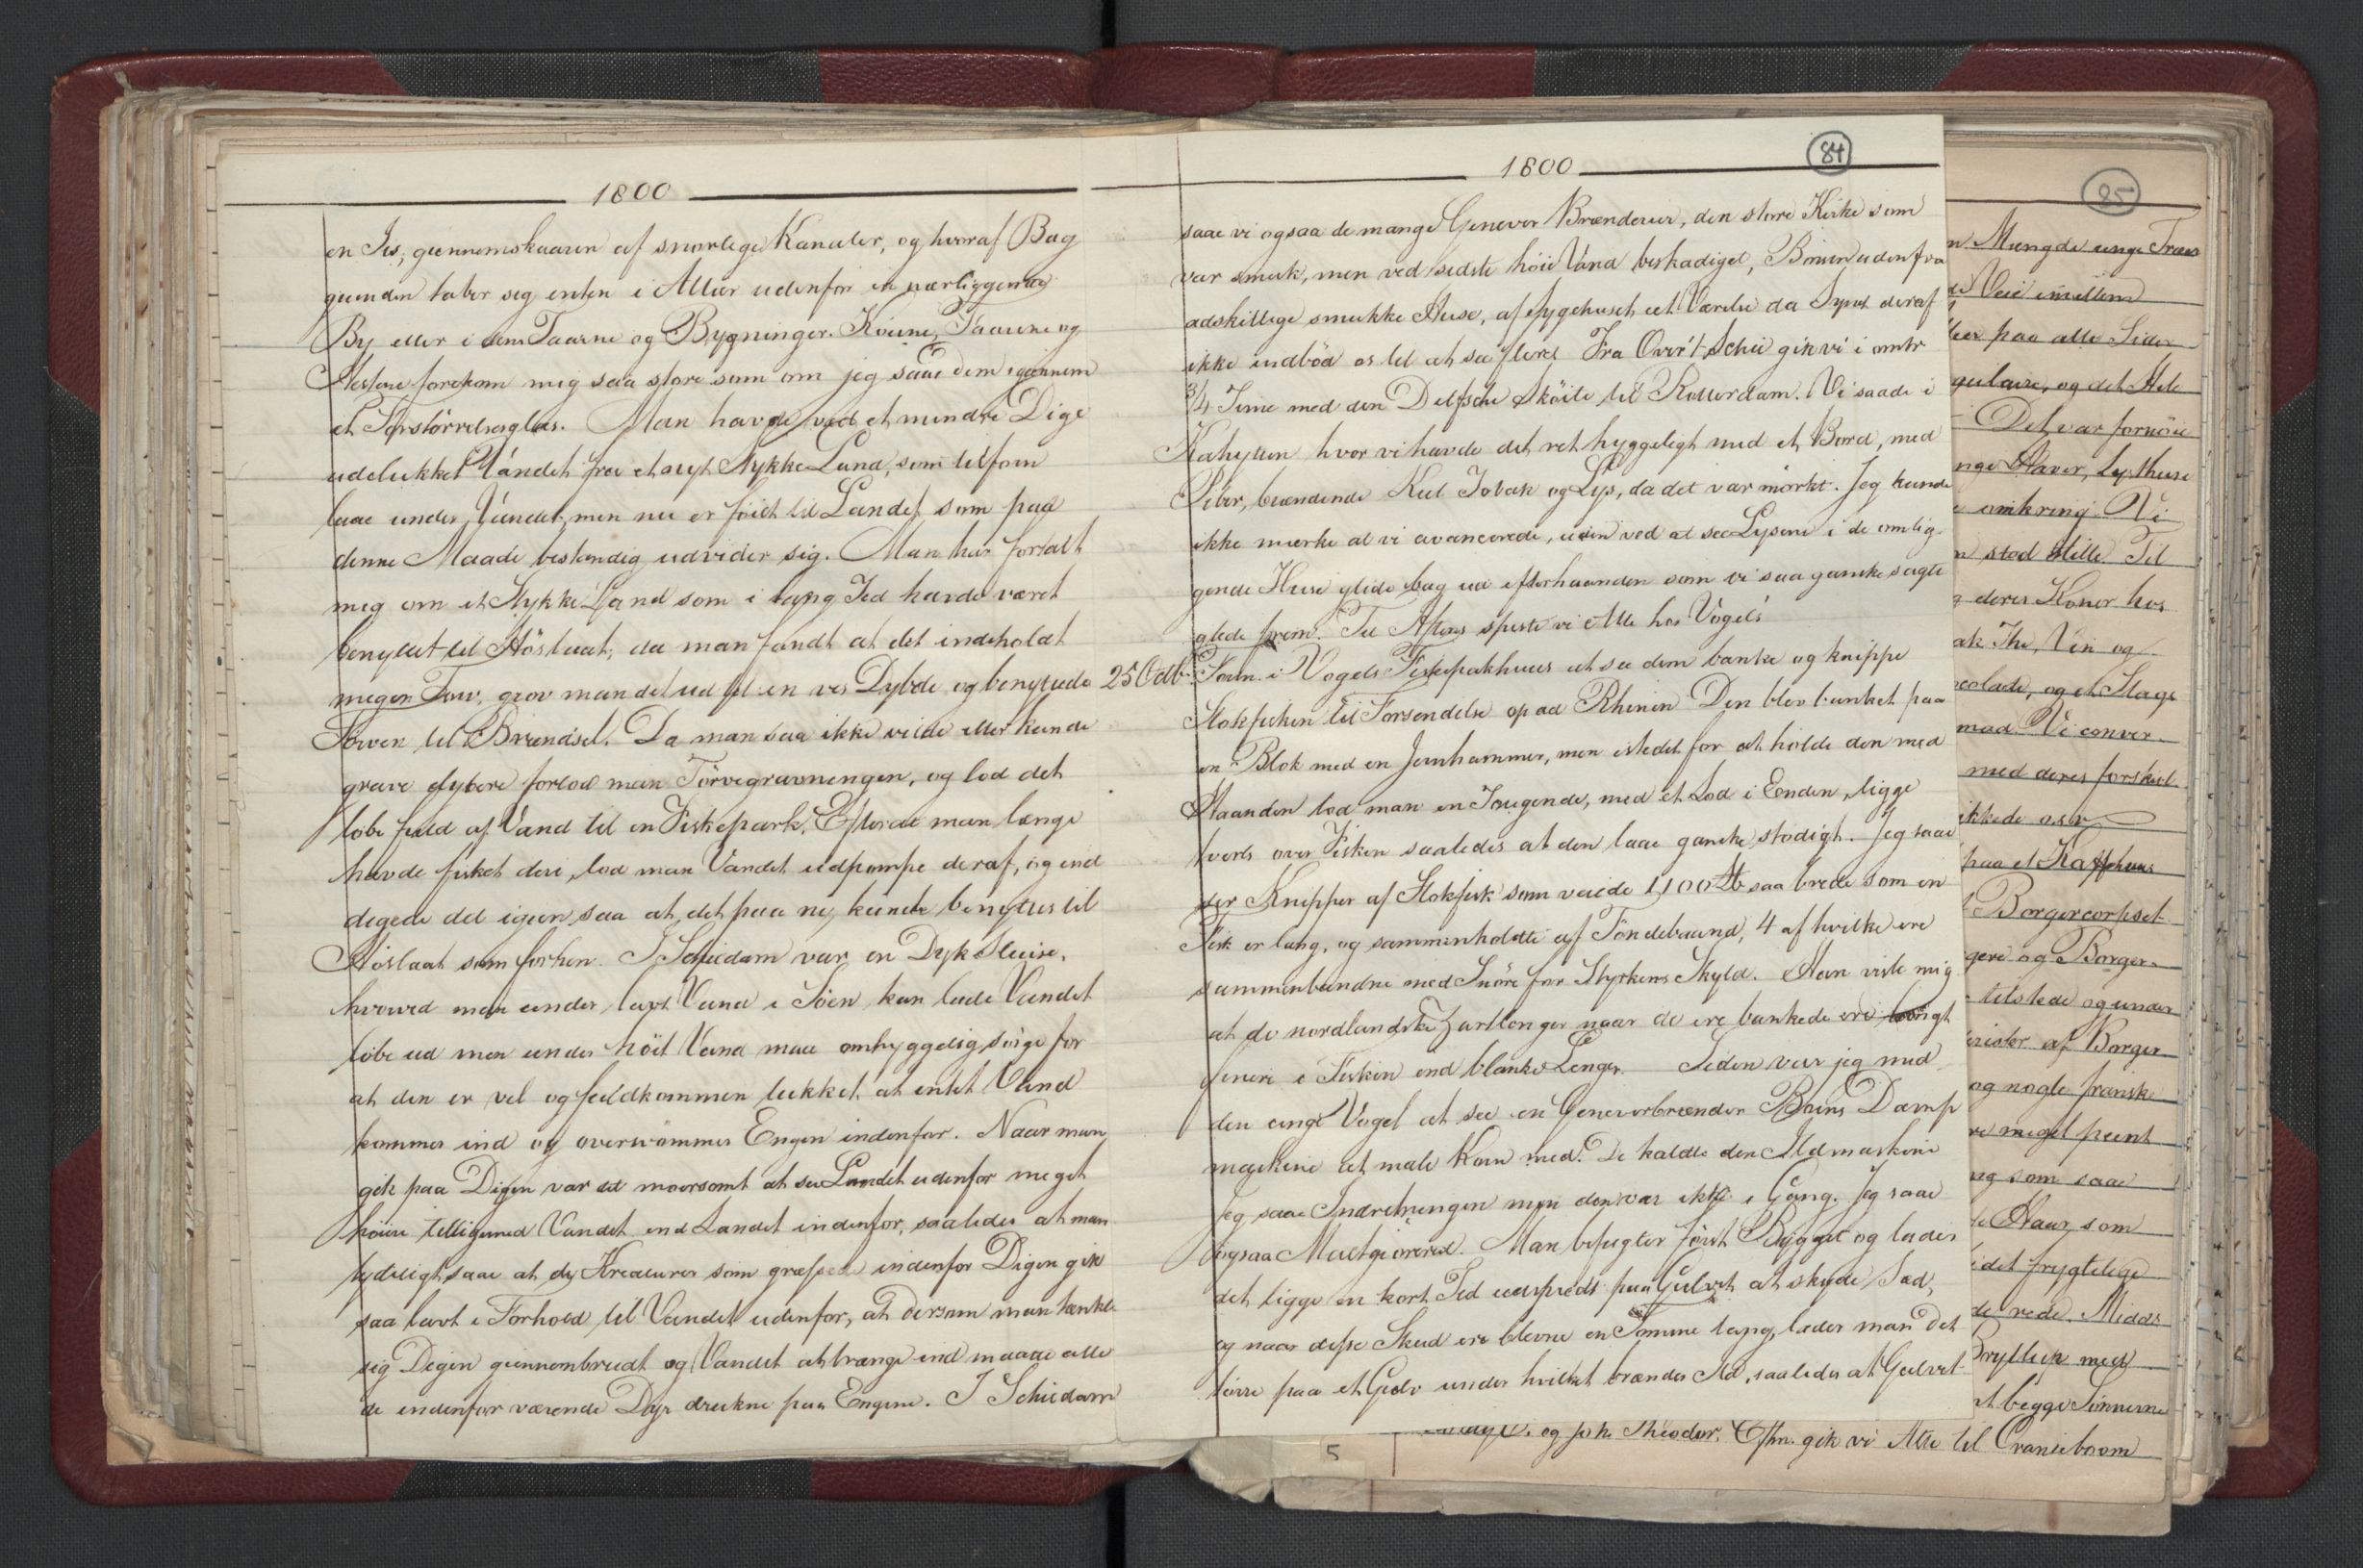 1800
en Is, giennemskaaren af snorlige Kanaler, og hvoraf Bag
grunden taber sig enten i Alleer udenfor en nærliggende
By eller i dens Taarne og Bygninger. Köerne, Faarene og
Hestene forekom mig saa store som om jeg saae dem igiennem
et Forstörrelsesglas. Man havde ved et mindre Dige
udelukket Vandet fra et stykke Land, som tilforn
laae under Vandet, men nu er föiet til Landet som paa
denne Maade bestandig udvider sig. Man har fortalt
mig om et Stykke Land som i lang Tid havde været
benyttet til Höslaat; da man fandt at det indeholdt
megen Törv, grov man det ud til en vis Dybde og benyttede
Törven til Brændsel. Da man saa ikke vilde eller kunde
grave dybere forlod man Törvegravningen, og lod det
löbe fuld af Vand til en Fiskepark. Efterat man længe
havde fisket deri, lod man Vandet udpompe deraf, og ind
digede det igien saa at det paa ny kunde benyttes til
Höslaat som forhen. I Schiedam var en Dyk Sluise,
hvorved man under lavt Vand i Söen kan lade Vandet
löbe ud men under höit Vand maa omhyggelig sörge for
at den er vel og fuldkommen lukket, at intet Vand
kommer ind og oversvömmer Engen indenfor. Naar man
gik paa Digen var det moersomt at see Landet udenfor meget
höiere tilligemed Vandet end Landet indenfor, saaledes at man
tydeligt saae at de Kreaturer som græssede indenfor Digen gik
saa lavt i Forhold til Vandet udenfor, at dersom man tænkte
sig Digen giennembrudt og Vandet at trænge ind maatte alle
de indenfor værende Dyr drukne paa Engene. I Schiedam
1800
84
saae vi ogsaa de mange Genever Brænderier, den store Kirke som
var smuk, men ved sidste höie Vand beskadiget, Börsen udenfra
adskillige smukke Huse, af Sygehuset eet Værelse da Synet deraf
ikke indböd os til at see flere. Fra Over't Schie gik vi i omtr
3/4 Time med den Delfsche Sköite til Rotterdam. Vi saade i
Kahytten hvor vi havde det ret hyggeligt med et Bord, med
Piber, brændende Kul Tobak og Lys, da det var mörkt. Jeg kunde
ikke mærke at vi avancerede, uden ved at see Lysene i de omlig
gende Huse glide bag ud efterhaanden som vi saa ganske sagte
glede frem. Til Aftens spiste vi Alle hos Vogels
25 Octb. Form. i Vogels Fiskepakhuus at see dem banke og knippe
Stokfisken til Forsendelse op ad Rhinen Den blev banket paa
en Blok med en Jernhammer, men istedet for at holde den med
Haanden lod man en Tougende, med et Lod i Enden, ligge
tverts over Fisken saaledes at den laae ganske stødigt. Jeg saae
der Knipper af Stokfisk som veiede 1,100 ℔ saa brede som en
Fisk er lang, og sammenholdte af Töndebaand, 4 af hvilke ere
sammenbundne med Snöre for Styrkens Skyld. Han viste mig
at de nordlandske Zartlenger naar de ere bankede ere
finere i Fisken end blanke Lenger. Siden var jeg med
den unge Vogel at see en Geneverbrænder Damp
maskine at male Korn med. De kaldte den Ildmaskine
Jeg saae Indretningen men den var ikke i Gang. Jeg saae
ogsaa Maltgiöreriet. Man befugter först Bygget og lader
det ligge en kort Tid udspredt paa Gulvet at skyde Sad,
og naar disse Skud ere blevne en Tomme lang, lader man det
törre paa et Gulv under hvilket brændes Ild, saaledes at Gulvet
85
Mængde unge Træer
Veie imellem
paa alle Sider
gulaire, og det Hele
Det var fornöie
Haver, Lysthuse
omkring. Vi
stod stille. Til
deres Koner hos
The, Vin og
colade, og et Slags
mad. Vi conver
med deres forskiel
ikkede os
paa et Kaffehuus
Borgercorpset
gere og Borger
tilstede og under
af Borger
og nogle franske
meget peent
som saae
Haar, som
det frygtelige
rede. Midd
Bryllup med
begge Sönnerne
og Joh. Theodor. Eftm. gik vi Alle til Oranieboom
5